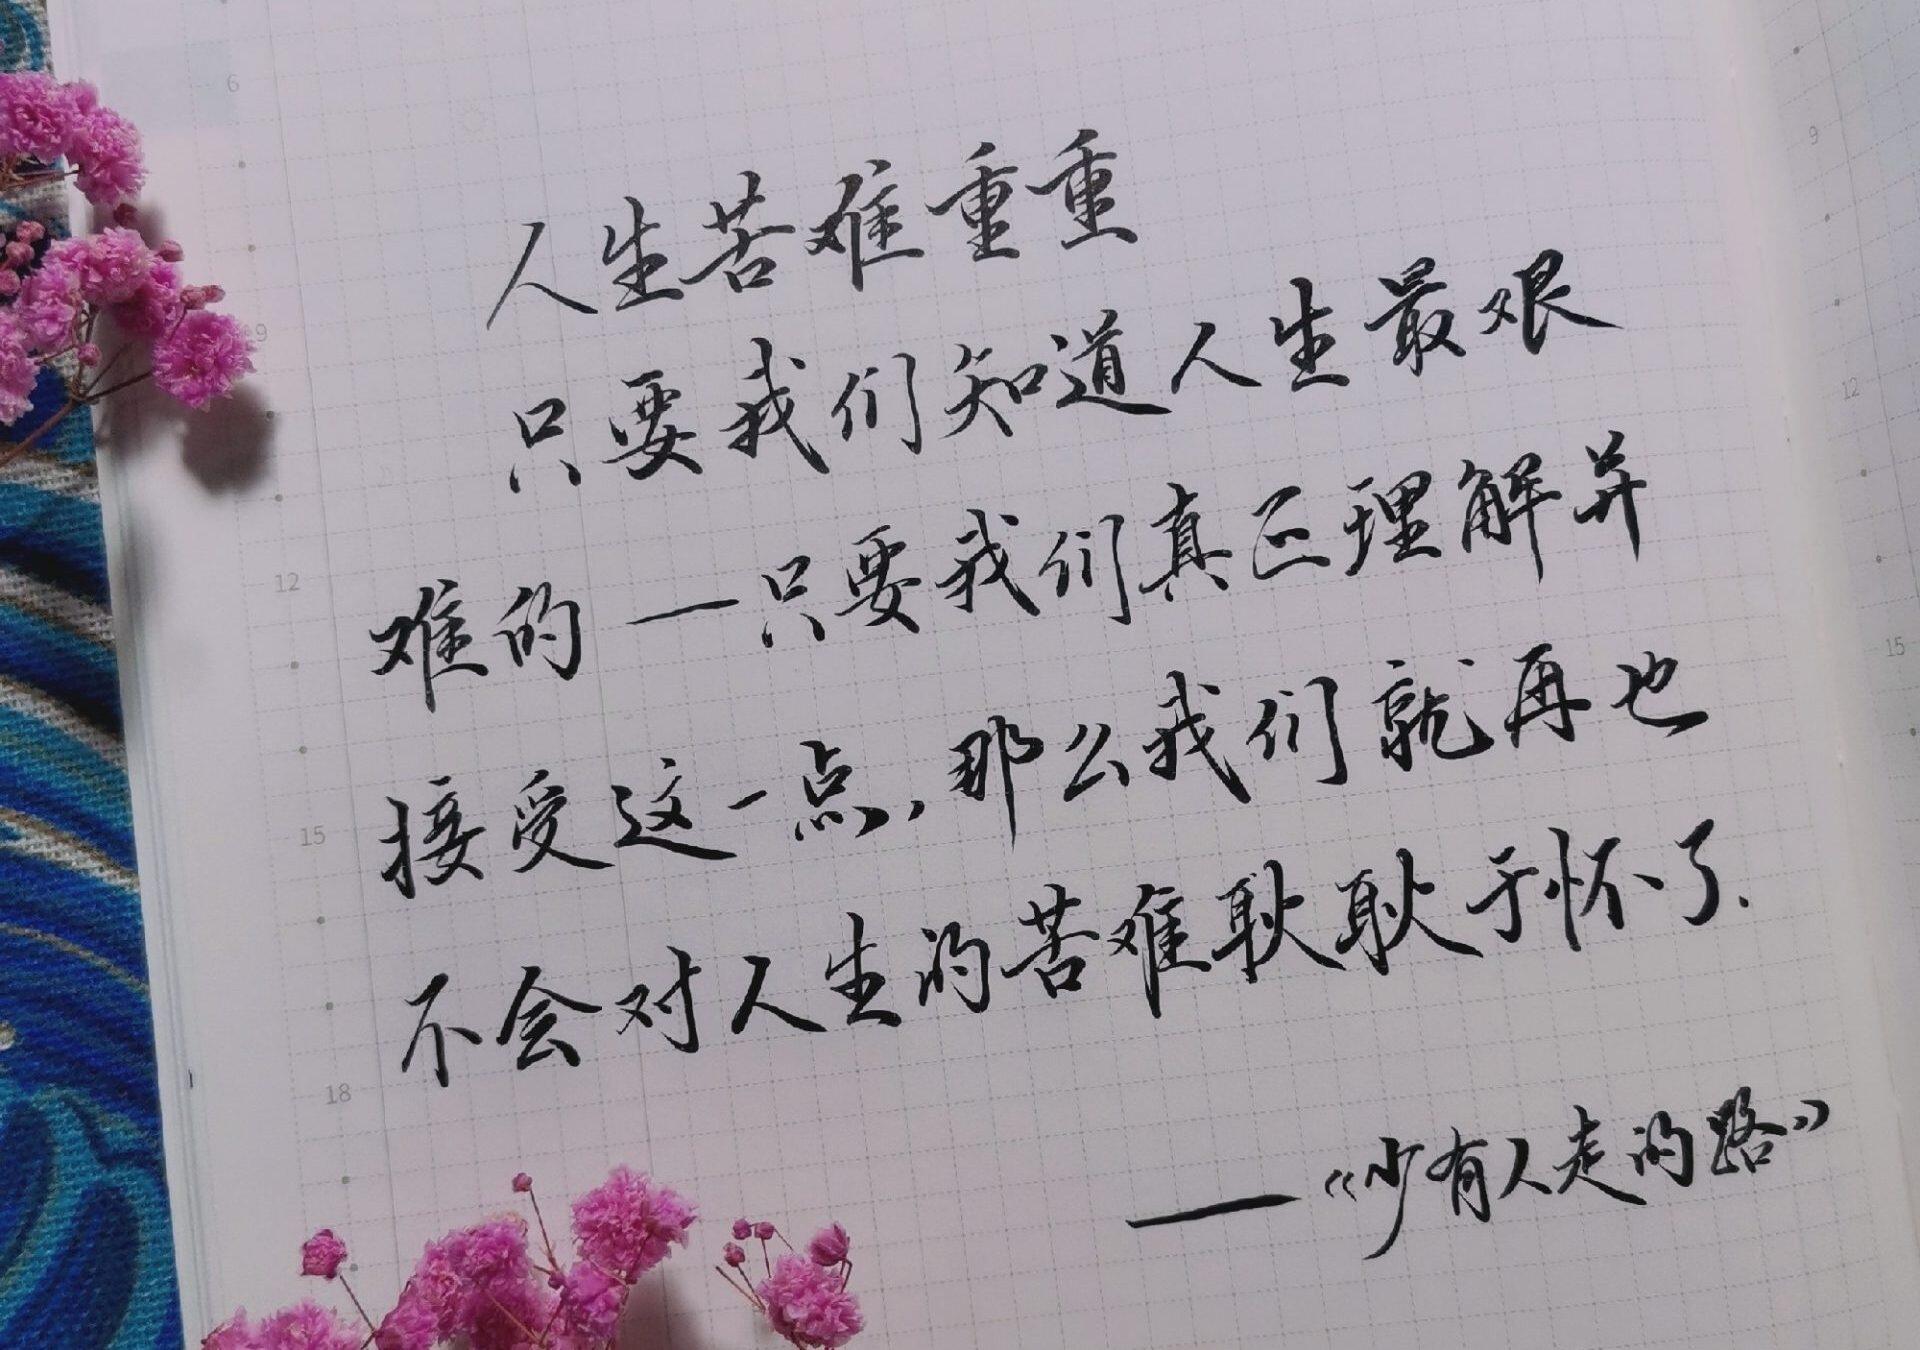 人生苦难重重
只要我们知道人生最艰
难的——只要我们真正理解并
接受这一点,那么我们就再也
不会对人生的苦难耿耿于怀了.
——《少有人走的路》
6
9
12
15
18
9
12
15